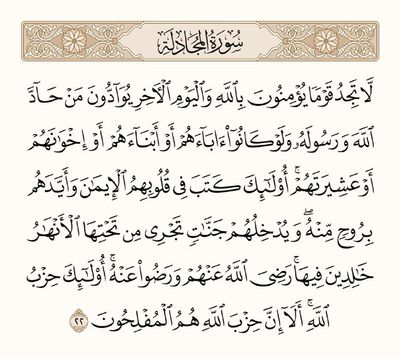 سُورَةُ المُجَادلَةِ
لَّا تَجِدُ قَوْمًا يُؤْمِنُونَ بِٱللَّهِ وَٱلْيَوْمِ ٱلْأَخِرِ يُوَآدُّونَ مَنْ حَآدَّ
ٱللَّهَ وَرَسُولَهُۥ وَلَوْ كَانُوٓا۟ ءَابَآءَهُمْ أَوْ أَبْنَآءَهُمْ أَوْ إِخْوَٰنَهُمْ
أَوْ عَشِيرَتَهُمْ ۚ أُو۟لَـٰٓئِكَ كَتَبَ فِى قُلُوبِهِمُ ٱلْإِيمَـٰنَ وَأَيَّدَهُم
بِرُوحٍ مِّنْهُ ۖ وَيُدْخِلُهُمْ جَنَّـٰتٍ تَجْرِى مِن تَحْتِهَا ٱلْأَنْهَـٰرُ
خَـٰلِدِينَ فِيهَا ۚ رَضِىَ ٱللَّهُ عَنْهُمْ وَرَضُوا۟ عَنْهُ ۚ أُو۟لَـٰٓئِكَ حِزْبُ
ٱللَّهِ ۚ أَلَآ إِنَّ حِزْبَ ٱللَّهِ هُمُ ٱلْمُفْلِحُونَ ٢٢